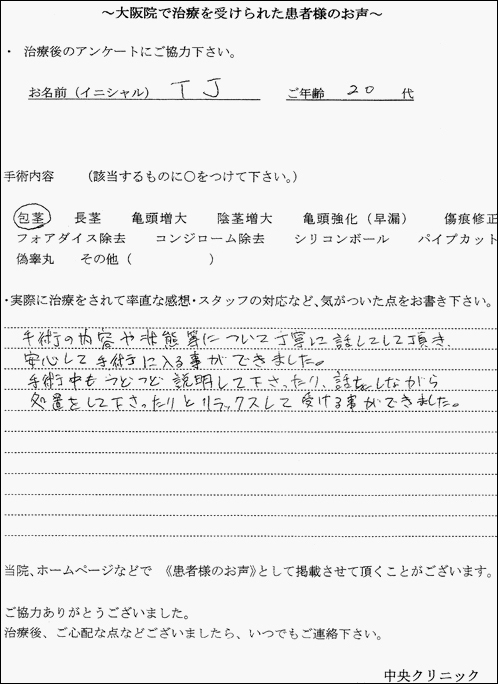 ～大阪院で治療を受けられた患者様のお声～
・ 治療後のアンケートにご協力下さい。
お名前（イニシャル） T J ご年齢 20 代
手術内容 （該当するものに○をつけて下さい。）
包茎 長茎 亀頭増大 陰茎増大 亀頭強化（早漏） 傷痕修正
フォアダイス除去 コンジローム除去 シリコンボール パイプカット
偽睾丸 その他（ ）
・実際に治療をされて率直な感想・スタッフの対応など、気がついた点をお書き下さい。
手術の内容や状態等について丁寧に話してして頂き、
安心して手術に入る事ができました。
手術中もうどつど説明して下さったり、話をしながら
処置をして下さったりとリラックスして受ける事ができました。
当院、ホームページなどで 《患者様のお声》として掲載させて頂くことがございます。
ご協力ありがとうございました。
治療後、ご心配な点などございましたら、いつでもご連絡下さい。
中央クリニック